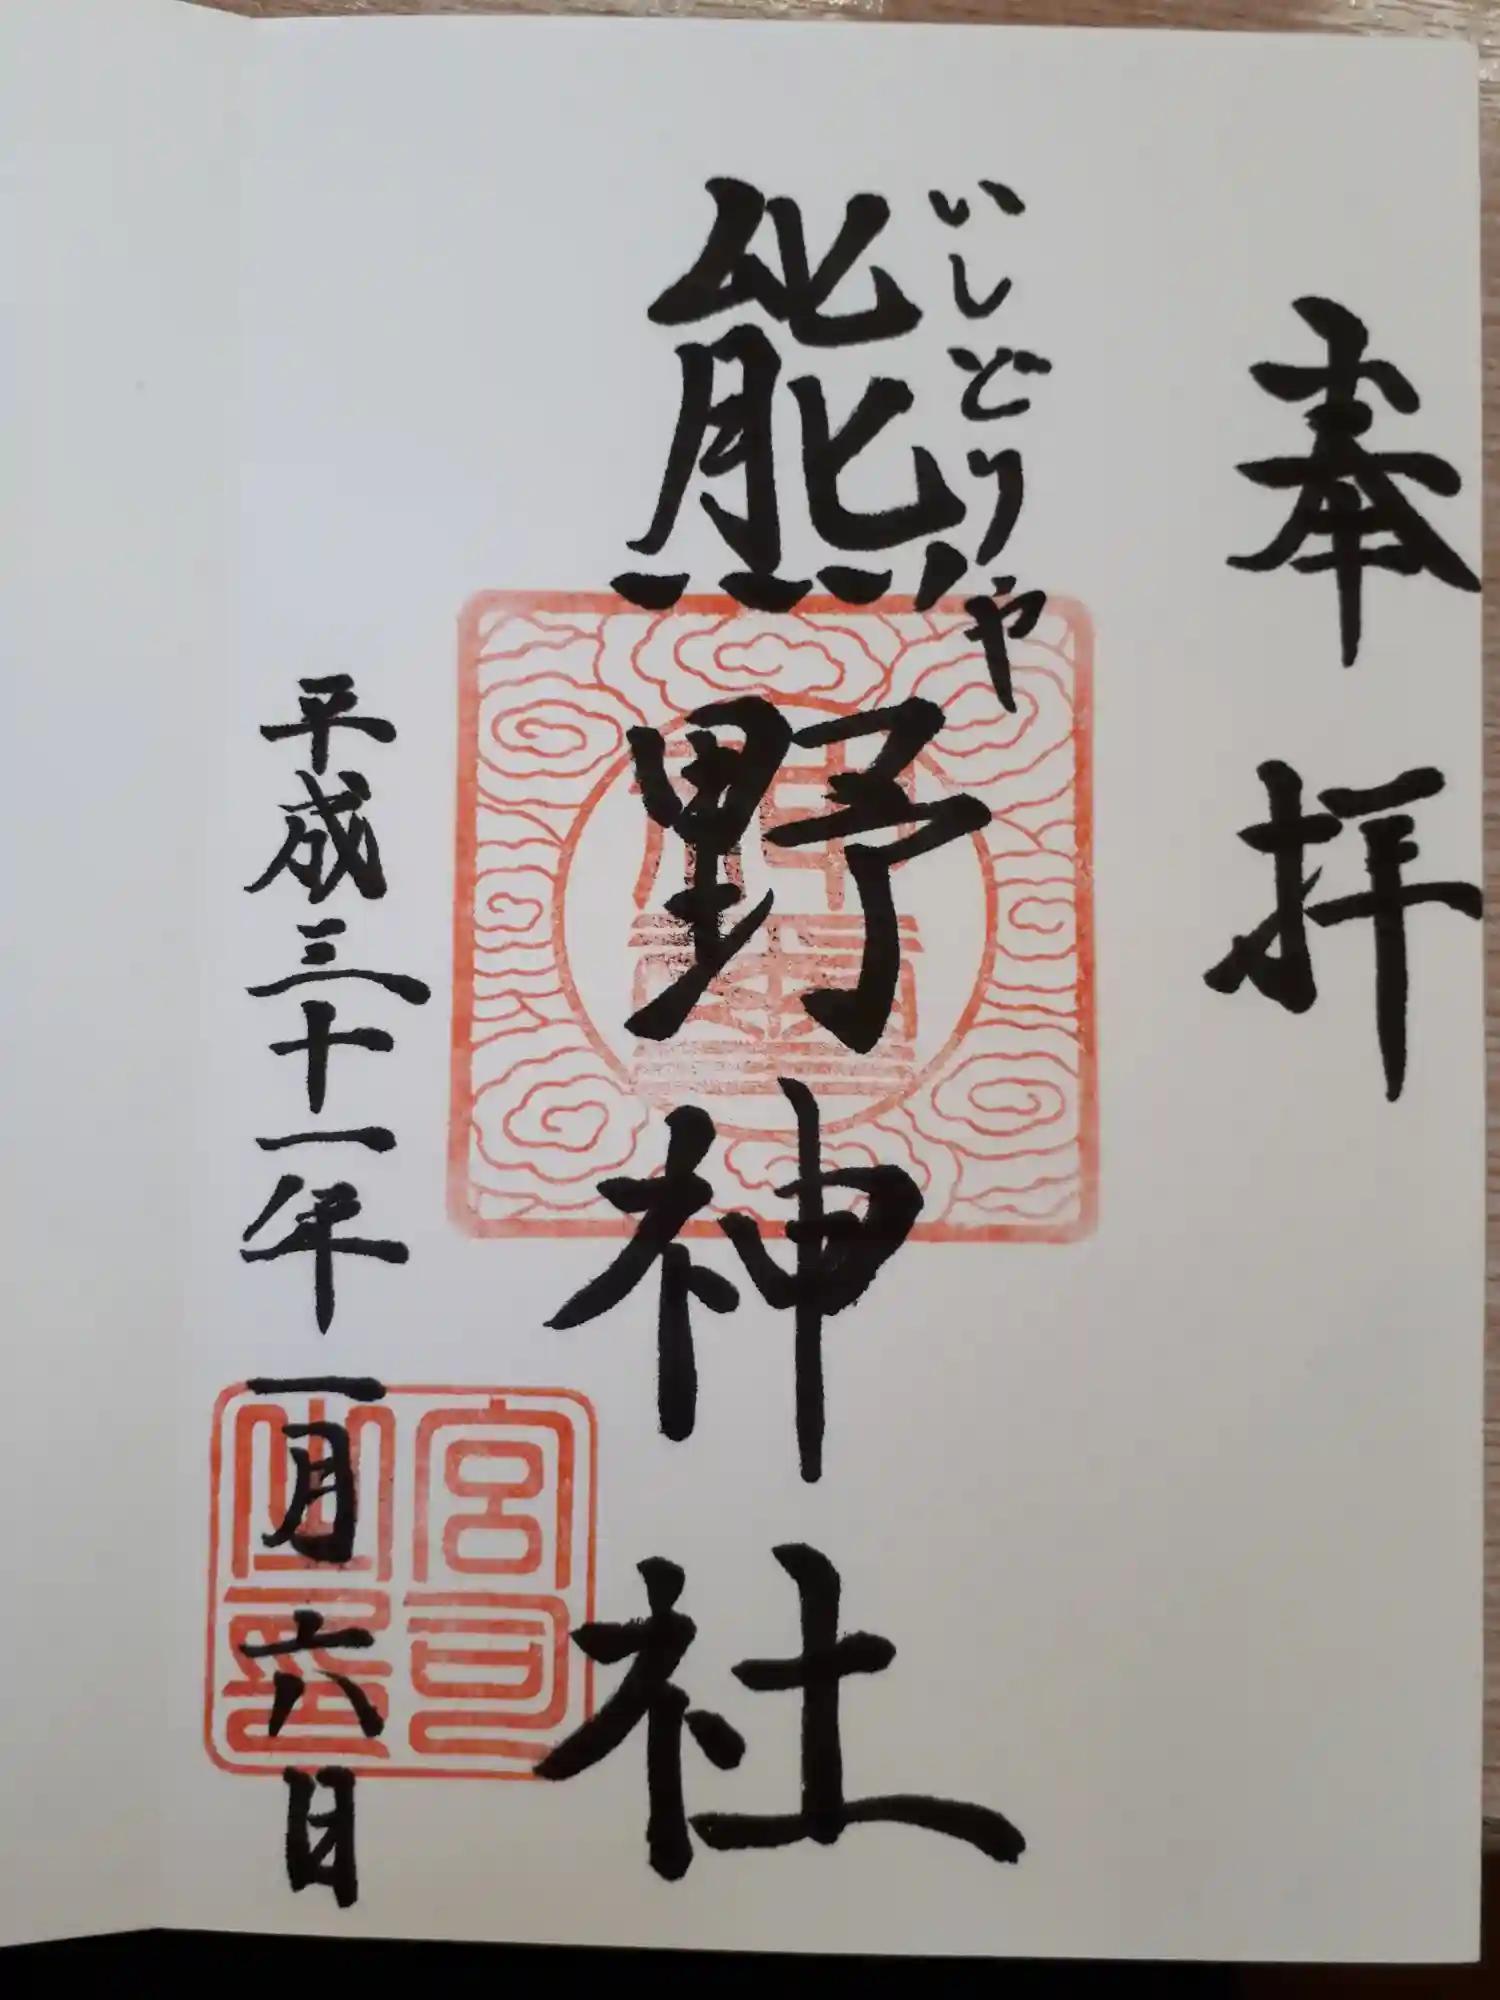 奉拝
いしどりや
熊野神社
平成三十一年一月六日
宮司之印